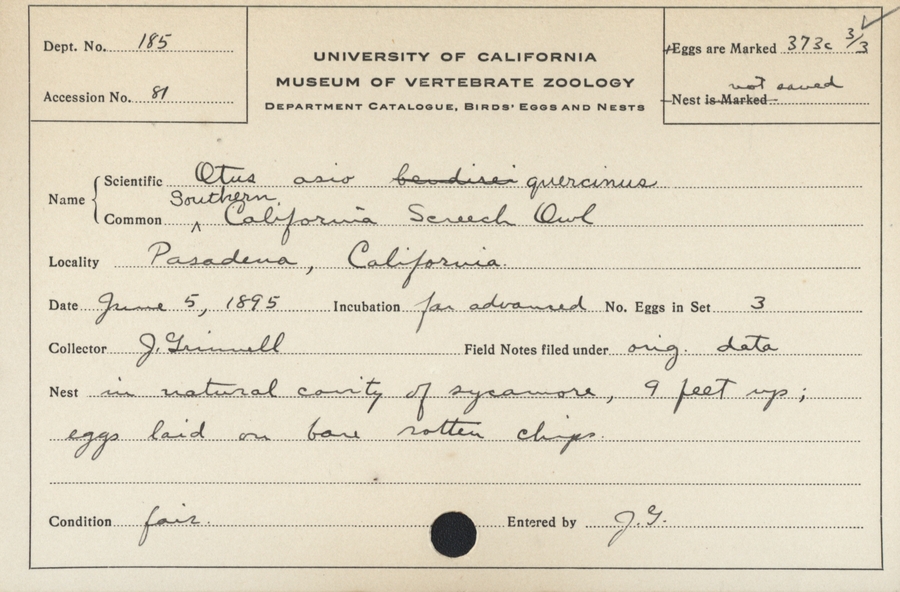 Dept. No. 185
Accession No. 81
UNIVERSITY OF CALIFORNIA
MUSEUM OF VERTEBRATE ZOOLOGY
DEPARTMENT CATALOGUE, BIRDS' EGGS AND NESTS
Eggs are Marked 373c 3/3
not saved
Nest is Marked
Name
Scientific Otus asio bendirei quercinus
Southern
Common ^ California Screech Owl
Locality Pasadena, California.
Date June 5, 1895 Incubation far advanced No. Eggs in Set 3
Collector J. Grinnell Field Notes filed under orig. data
Nest in natural cavity of sycamore, 9 feet up;
eggs laid on bare rotten chips.
Condition fair. Entered by J.G.